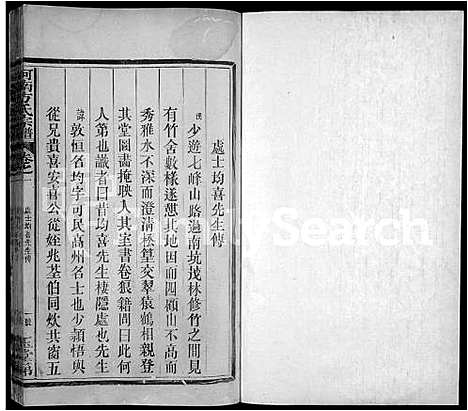 處士均喜先生傳
僕少遊七峰山路過南坑茂林修竹之間見
有竹舍數椽遂憇其地因而四顧山不高而
秀雅水不深而澄清松篁交翠猿鶴相親登
其堂圖畵掩映人其室書卷狼籍問曰此何
人第也識者曰昔均喜先生棲隱處也先生
諱敦恒名均字可民高州名士也少頴悟與
從兄貴喜安喜公從姪兆荃伯同炊其窗五
河南方氏宗譜
卷之一
處士均喜先生傳
FamilySearch